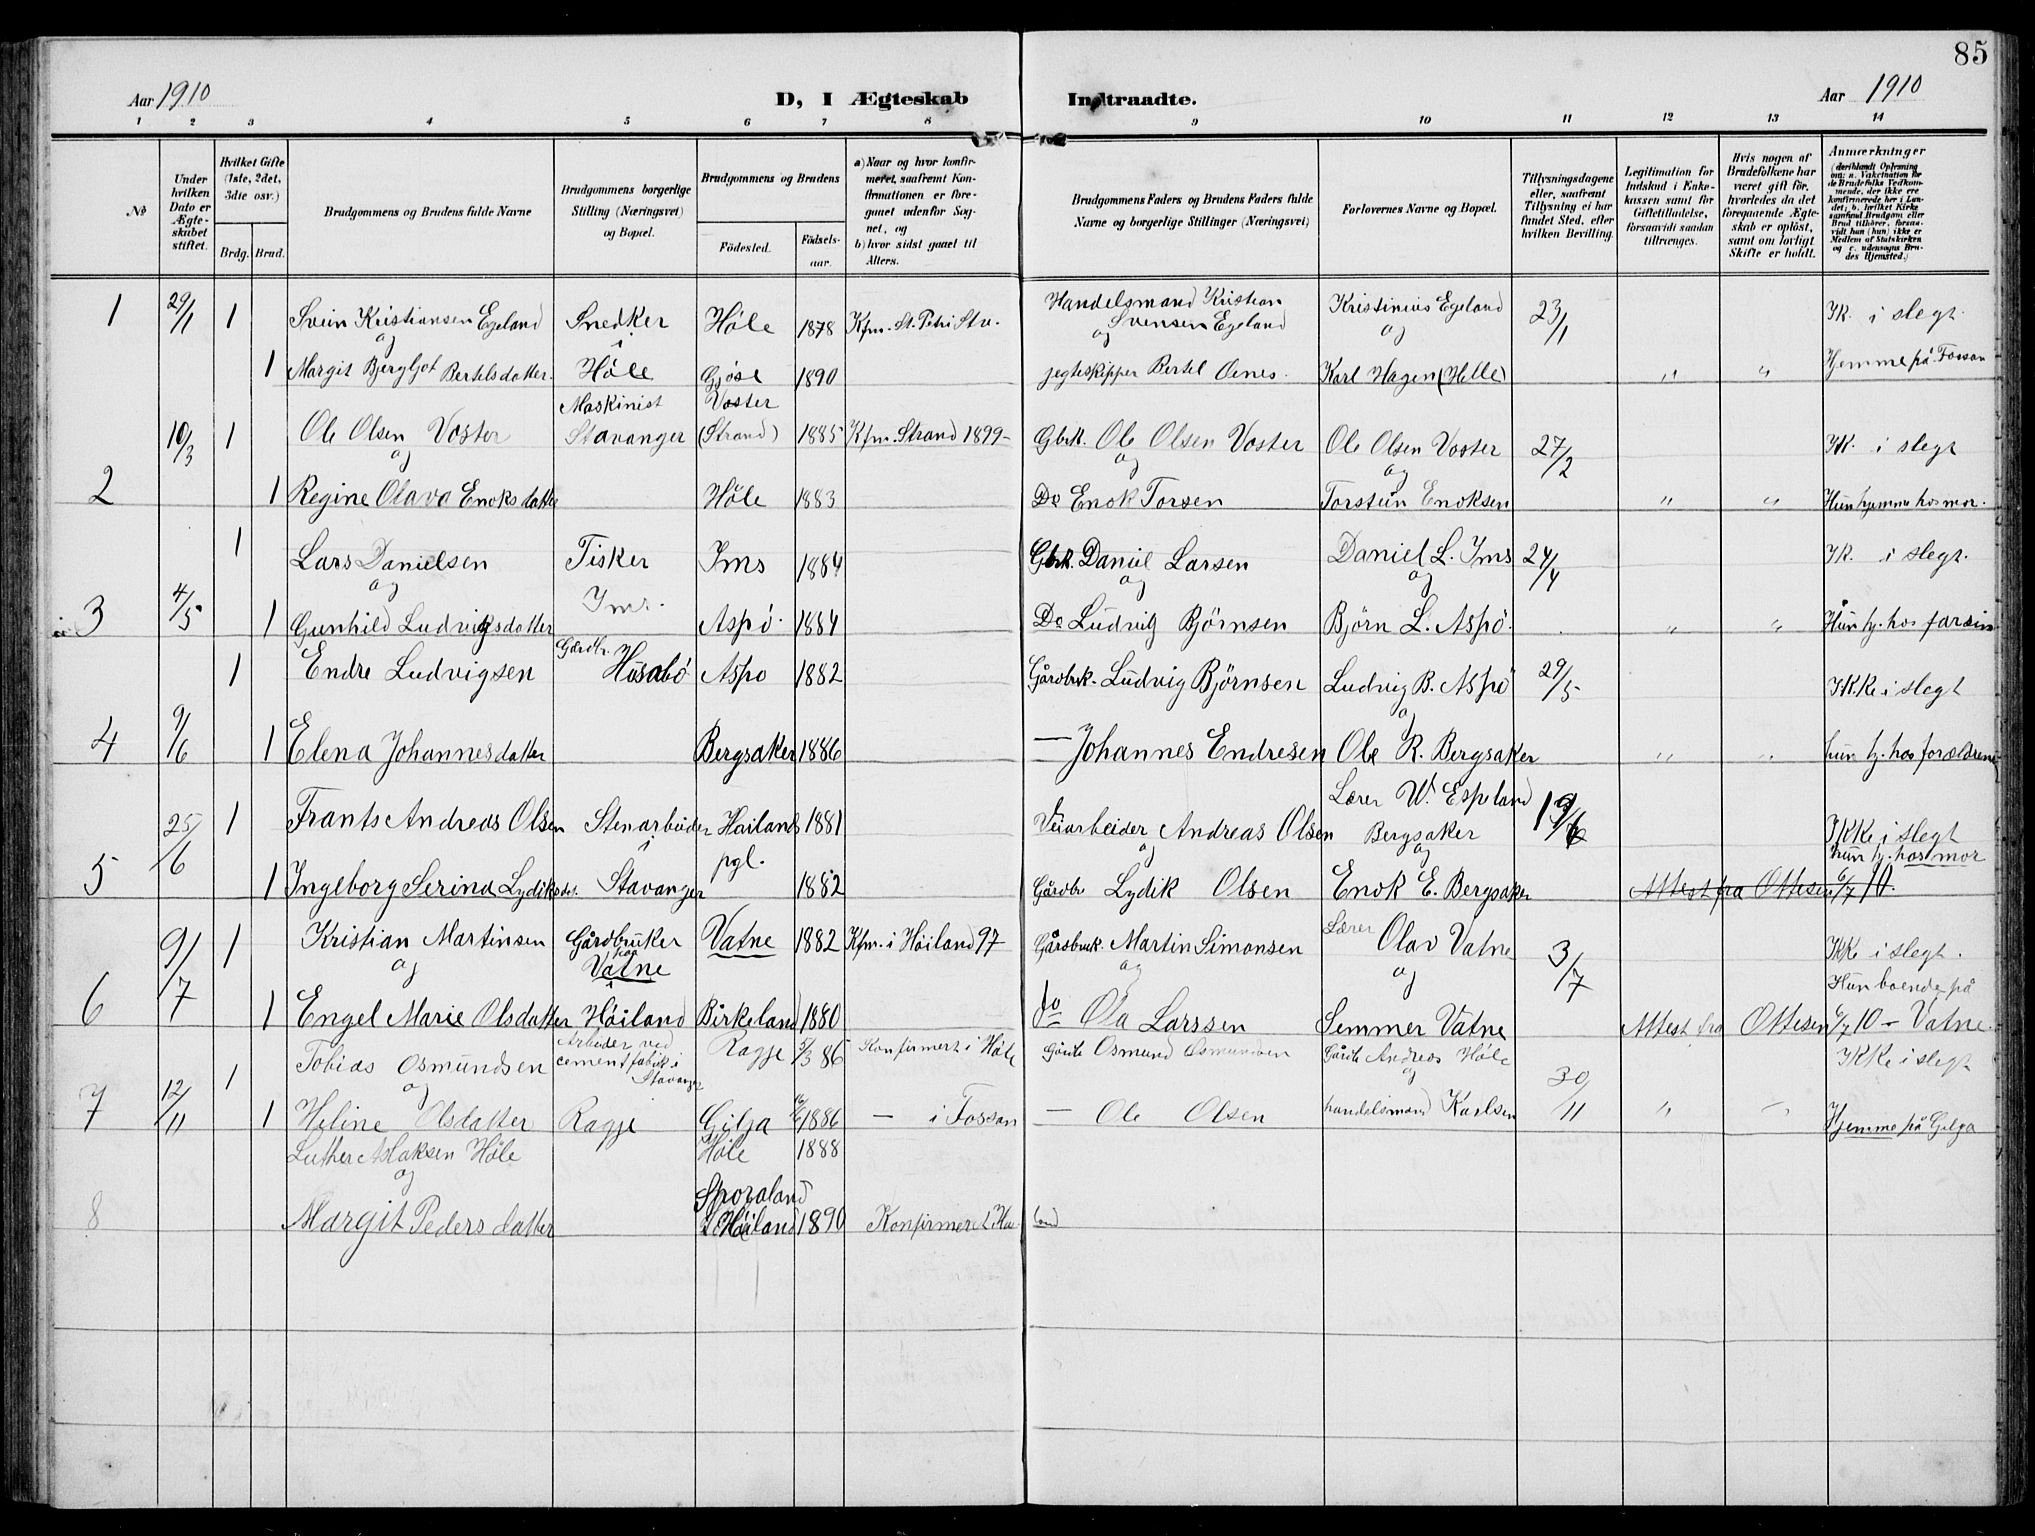 85
Aar 1910 D, I Ægteskab Indtraadte. Aar 1910
1 2 3 4 5 6 7 8 9 10 11 12 13 14
No
Under hvilken Dato er Ægte-skabet stiftet.
Hvilket Gifte (1ste, 2det, 3die osv.)
Brdg. Brud.
Brudgommens og Brudens fulde Navne
Brudgommens borgerlige Stilling (Næringsvei) og Bopæl.
Brudgommens og Brudens
Födested.
Födsels-aar.
a) Naar og hvor konfir-meret, saafremt Kon-firmationen er fore-gaaet udenfor Sog-net, og
b) hvor sidst gaaet til Alters.
Brudgommens Faders og Brudens Faders fulde Navne og borgerlige Stillinger (Næringsvei)
Forlovernes Navne og Bopæl.
Tillysningsdagene eller, saafremt Tillysning ei har fundet Sted, efter hvilken Bevilling.
Legitimation for Indskud i Enke-kassen samt for Giftetilladelse, forsaavidt saadan tiltrænges.
Hvis nogen af Brudefolkene har været gift før, hvorledes da det foregaaende Ægte-skab er oplöst, samt om lovligt Skifte er holdt.
Anmærkninger (deriblandt Oplysning om: a. Vakcination for de Brudefolks Vedkom-mende, der ikke ere konfirmerede her i Lan-det; b. hvilket Kirke-samfund Brudgom eller Brud tilhörer, forsaa-vidt han (hun) ikke er Medlem af Statskirken og c. udensogns Bru-des Hjemsted.)
1 29/1 1 Svein Kristiansen Egeland Snedker Høle 1878 Kfm. St. Petri Stv. Handelsmand Kristian Svensen Egeland Kristinius Egeland 23/1 IK. i slegt.
og i og og
1 Margit Bergljot Bertelsdatter. Høle Gjøse 1890 jegteskipper Bertel Oenes. Karl Hagen (Helle) " " Hjemme på Fossan
Maskinist Voster
10/3 1 Ole Olsen Voster Stavanger (Strand) 1885 Kfm. Strand 1899- Gbrk. Ole Olsen Voster Ole Olsen Voster 27/2 IK. i slegt
og og og
2 1 Regine Olava Enoksdatte Høle 1883 Do Enok Torsen Torstein Enoksen " " Hun hjemme hos mor.
1 Lars Danielsen Fisker Ims 1884 Gbrk. Daniel Larsen Daniel L. Ims 24/4 IK. i slegt.
og Ims. og og
3 4/5 1 Gunhild Ludvigsdatter Aspö 1884 Do Ludvig Bjørnsen Björn L. Aspö. " " Hun hj. hos
1 Endre Ludvigsen Gardbr. Høsabö Aspö 1882 Gårdbruk. Ludvig Bjørnsen Ludvig B. Aspö 29/5 IKKe i slegt
og
4 9/6 1 Elena Johannesdatter Bergsaker 1886 — Johannes Endresen Ole R. Bergsaker " " hun hj. hos forældrene
25/6 1 Frants Andreas Olsen Stenarbeider Høiland 1881 Veiarbeider Andreas Olsen Lærer W. Espeland Bergsaker 19/6 IKKe i slegt
i pgl. og og hun hj. hos mor
5 1 Ingeborg Serina Lydiksdat. Stavanger 1882 Gårdbr Lydik Olsen Enok E. Bergsaker Attest fra Ottesen 6/7 10.
9/7 1 Kristian Martinsen Gårdbruker Vatne 1882 Kfm. i Høiland 97 Gårdbruk. Martin Simonsen Lærer Olav Vatne 3/7 IKKe i slegt.
og paa Vatne og og Hun boende på
6 1 Engel Marie Olsdatter i Høiland Birkeland 1880 do Ola Larssen Semmer Vatne Attest fra Ottesen 6/7 10 - Vatne.
1 Tobias Osmundsen Arbeider ved cementfabrik i Stavanger Ragje 5/3 86 Konfirmert i Høle Gårdb Osmund Osmundsen Gårdb Andreas Høle 30/11 IKKe i slegt
og og
7 12/11 1 Heline Olsdatter Ragje Gilja 1886 — i Fossan — Ole Olsen handelsmand Karlsen " Hjemme på Gilja
Luther Aslaksen Høle Høle 1888
og
8 Margit Peders datter Sporaland i Høiland 1890 Konfirmeret i Høiland